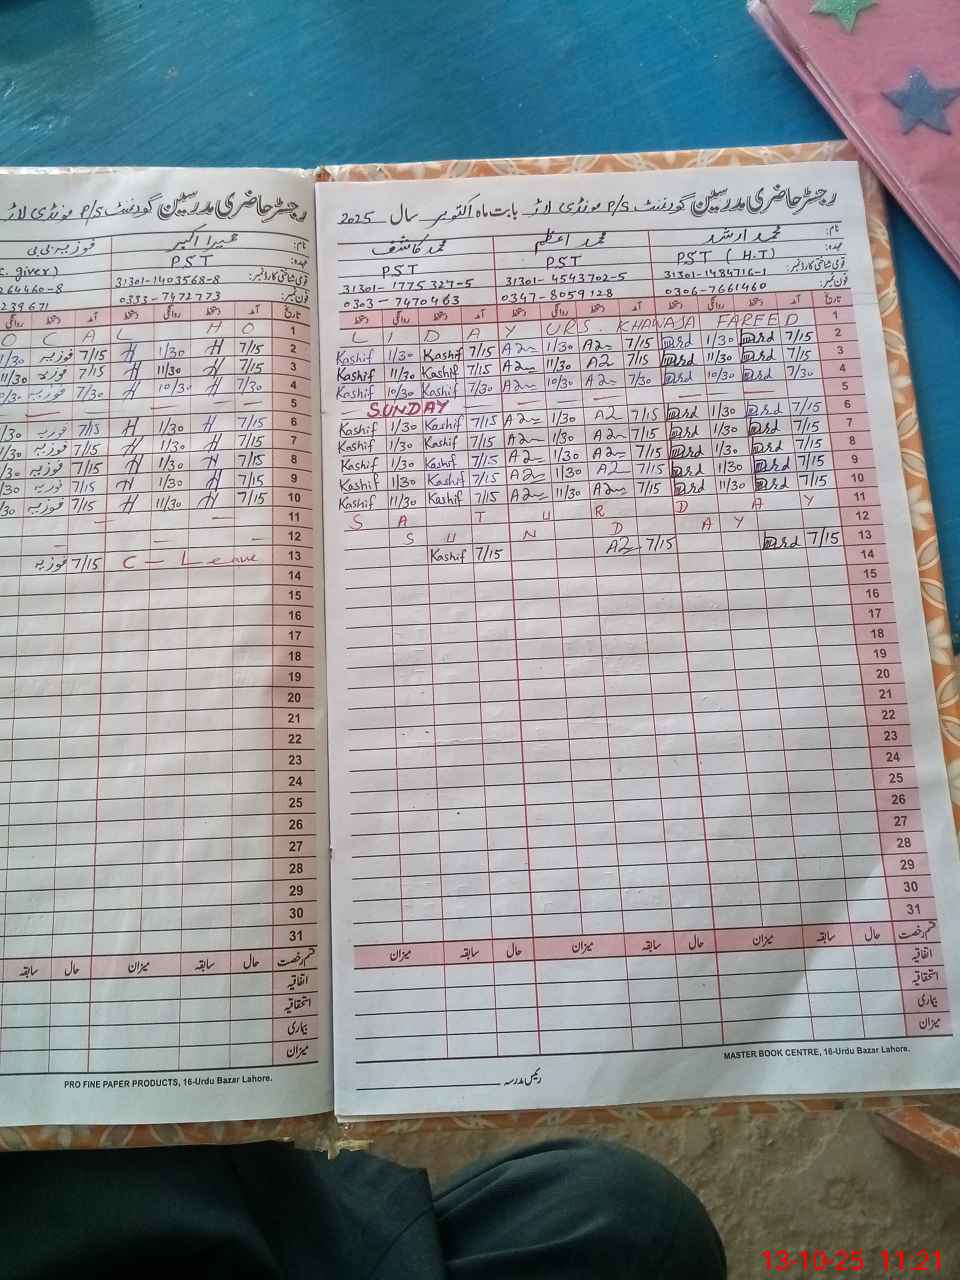 رجسٹر حاضری مدرسین گورنمنٹ P/S مونڈی لاڑ بابت ماہ اکتوبر سال 2025
نام: محمد ارشد محمد اعظم محمد کاشف
عہدہ: PST (H.T) PST PST
قومی شناختی کارڈ نمبر: 31301-1484716-1 31301-4543702-5 31301-1775327-5
فون نمبر: 0306-7661460 0347-8059128 0303-7470463
تاریخ آمد دستخط روانگی دستخط آمد دستخط روانگی دستخط آمد دستخط روانگی دستخط
1 L I D A Y URS. KHAWAJA FAREED
2 Kashif 1/30 Kashif 7/15 A2 1/30 A2 7/15 Ard 1/30 Ard 7/15
3 Kashif 11/30 Kashif 7/15 A2 11/30 A2 7/15 Ard 11/30 Ard 7/15
4 Kashif 10/30 Kashif 7/30 A2 10/30 A2 7/30 Ard 10/30 Ard 7/30
5 SUNDAY
6 Kashif 1/30 Kashif 7/15 A2 1/30 A2 7/15 Ard 1/30 Ard 7/15
7 Kashif 1/30 Kashif 7/15 A2 1/30 A2 7/15 Ard 1/30 Ard 7/15
8 Kashif 1/30 Kashif 7/15 A2 1/30 A2 7/15 Ard 1/30 Ard 7/15
9 Kashif 1/30 Kashif 7/15 A2 1/30 A2 7/15 Ard 1/30 Ard 7/15
10 Kashif 11/30 Kashif 7/15 A2 11/30 A2 7/15 Ard 11/30 Ard 7/15
11 S A T U R D A Y
12 S U N D A Y
13 Kashif 7/15 A2 7/15 Ard 7/15
14
15
16
17
18
19
20
21
22
23
24
25
26
27
28
29
30
31
قسم رخصت حال سابقہ میزان حال سابقہ میزان حال سابقہ میزان
اتفاقیہ
استحقاقیہ
بیماری
میزان
MASTER BOOK CENTRE, 16-Urdu Bazar Lahore.
رئیس مدرسہ
رجسٹر حاضری مدرسین گورنمنٹ P/S مونڈی لاڑ
نام: حمیرا اکبر فوزیہ بی بی
عہدہ: PST C. giver)
قومی شناختی کارڈ نمبر: 31301-1403568-8 264460-8
فون نمبر: 0333-7472773 239671
تاریخ آمد دستخط روانگی دستخط آمد دستخط روانگی
1 O C A L H O
2 1/30 فوزیہ 7/15 H 1/30 H 7/15
3 11/30 فوزیہ 7/15 H 11/30 H 7/15
4 0/30 فوزیہ 7/30 H 10/30 H 7/30
5
6 1/30 فوزیہ 7/15 H 1/30 H 7/15
7 1/30 فوزیہ 7/15 H 1/30 H 7/15
8 1/30 فوزیہ 7/15 H 1/30 H 7/15
9 1/30 فوزیہ 7/15 H 1/30 H 7/15
10 1/30 فوزیہ 7/15 H 11/30 H 7/15
11
12
13 فوزیہ 7/15 C - Leave
14
15
16
17
18
19
20
21
22
23
24
25
26
27
28
29
30
31
قسم رخصت حال سابقہ میزان حال سابقہ
اتفاقیہ
استحقاقیہ
بیماری
میزان
PRO FINE PAPER PRODUCTS, 16-Urdu Bazar Lahore.
13-10-25 11:21